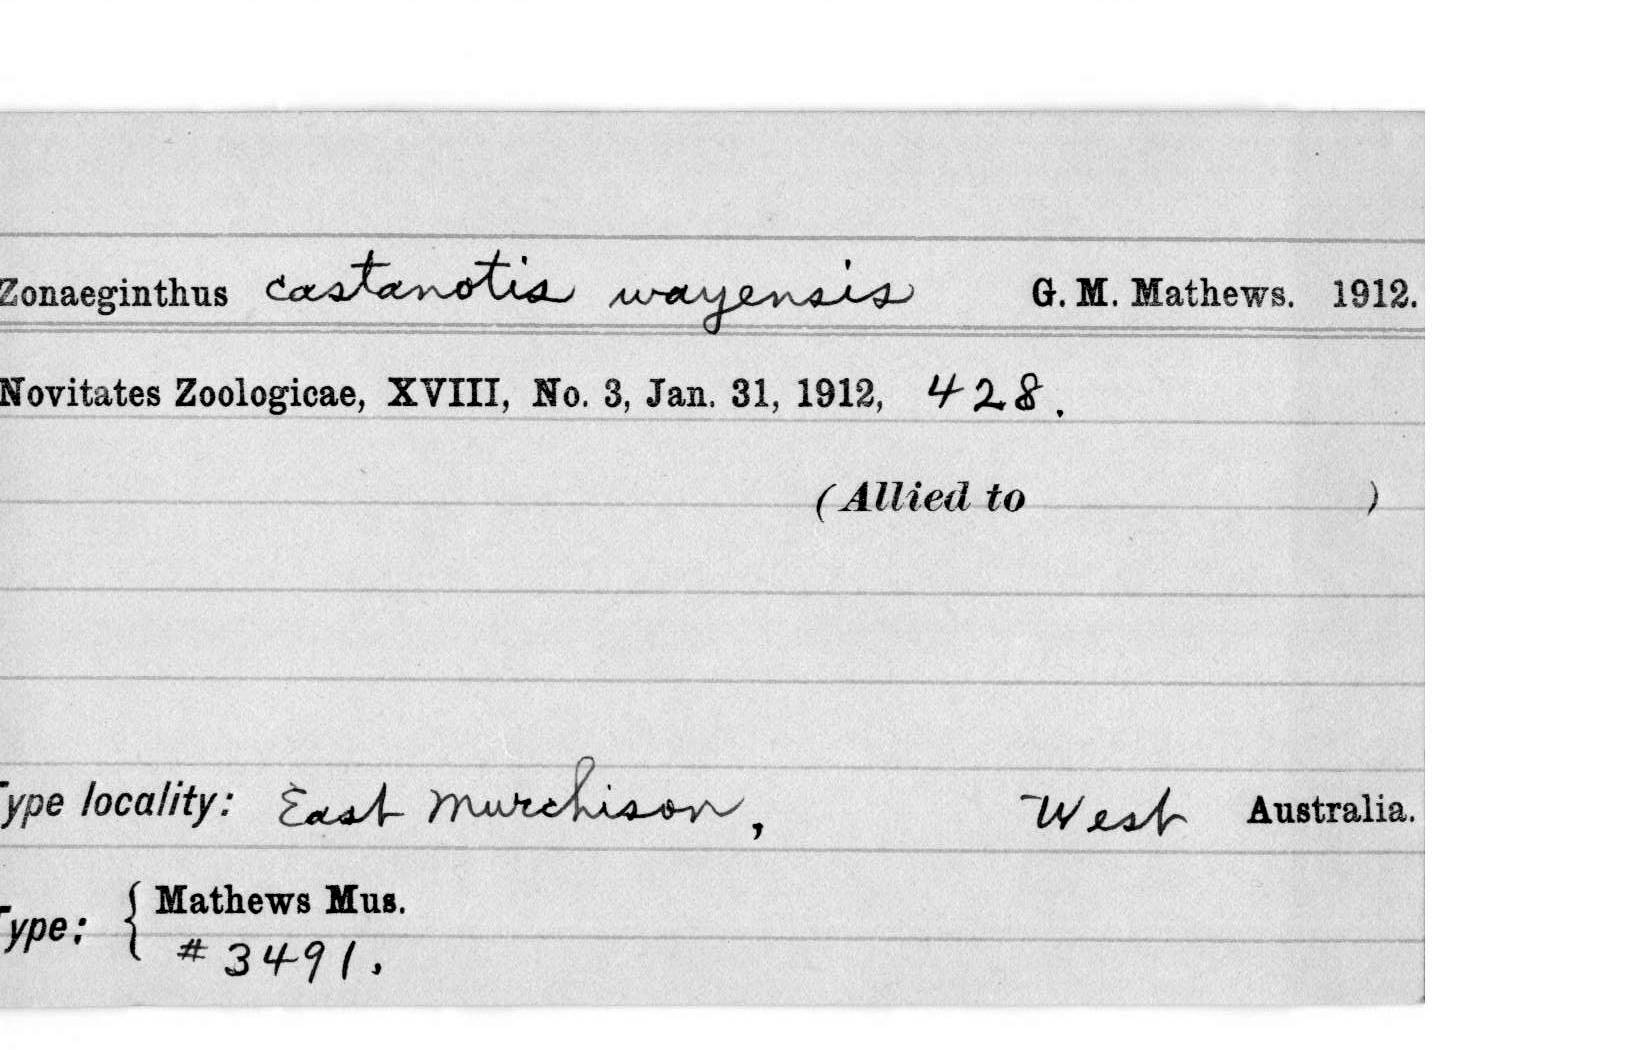 Zonaeginthus castanotis wayensis G. M. Mathews. 1912.
Novitates Zoologicae, XVIII, No. 3, Jan. 31, 1912, 428.
(Allied to )
Type locality: East Murchison, West Australia.
Type: { Mathews Mus.
# 3491.